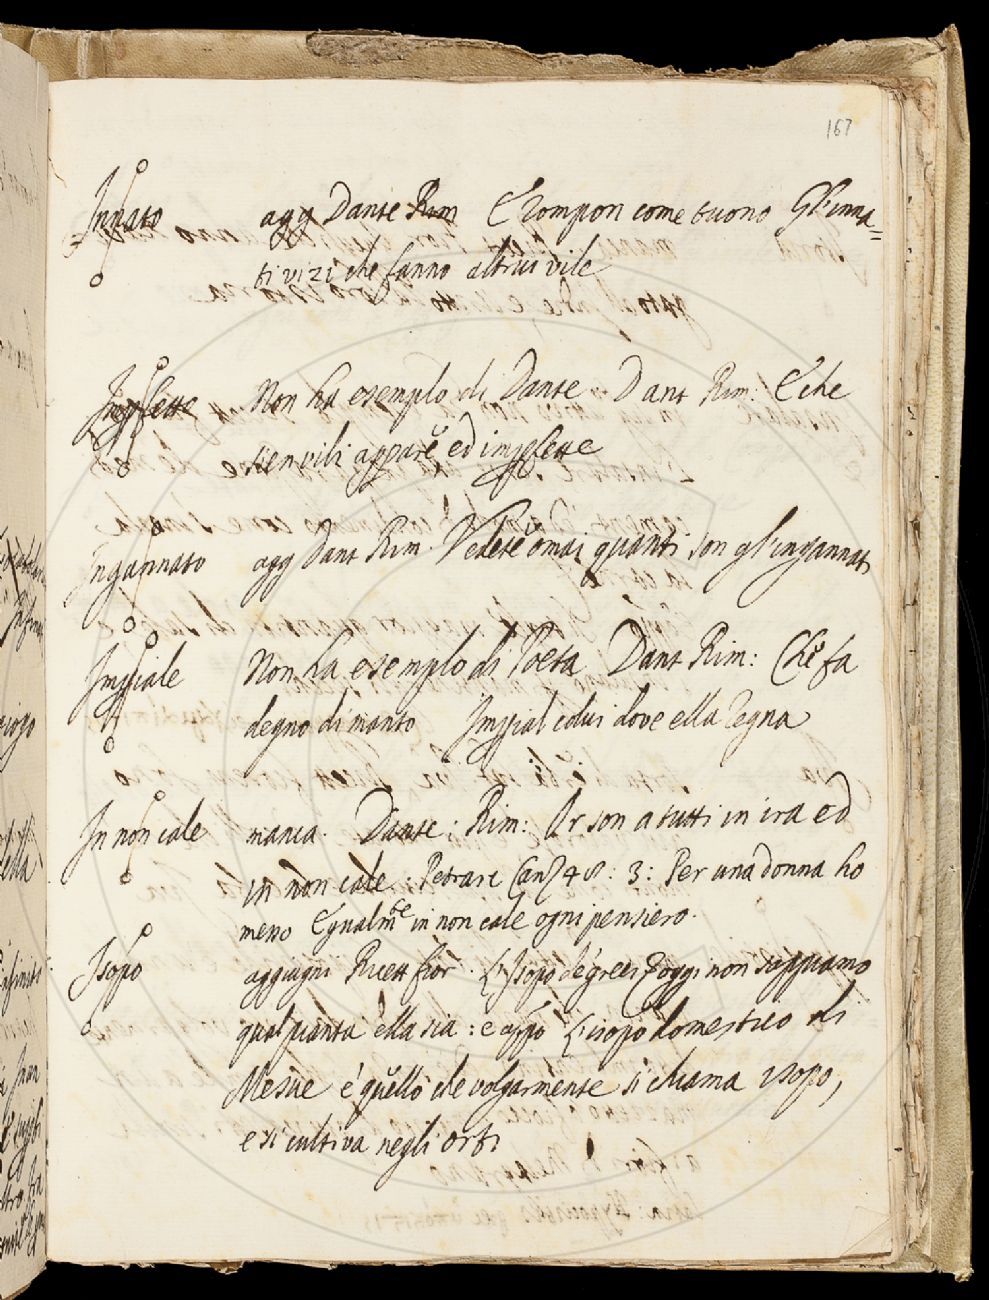 167
Innato agg Dante Rim E rompon come tuono Gl'inna=
ti vizi che fanno altrui vile
Imp̱fette Non ha esempio di Dante Dant Rim: E che
sien vili appare ed imp̱fette
Ingannato agg Dant Rim. Vedete omai quanti son gl'ingannati
Imp̱iale Non ha esempio di Poeta Dant Rim: Che fa
degno di manto Imp̱ial colui dove ella regna
In non cale manca. Dante: Rim: Or son a tutti in ira ed
in non cale: Petrarc Canz 48: 3: Per una donna ho
messo Egualmte in non cale ogni pensiero.
Isopo aggiugni Ricett fior. L'Isopo de greci oggi non sappiamo
qual pianta ella sia: e app̱o L'isopo domestico di
Mesue è quello che volgarmente si chiama isopo,
e si cultiva negli orti